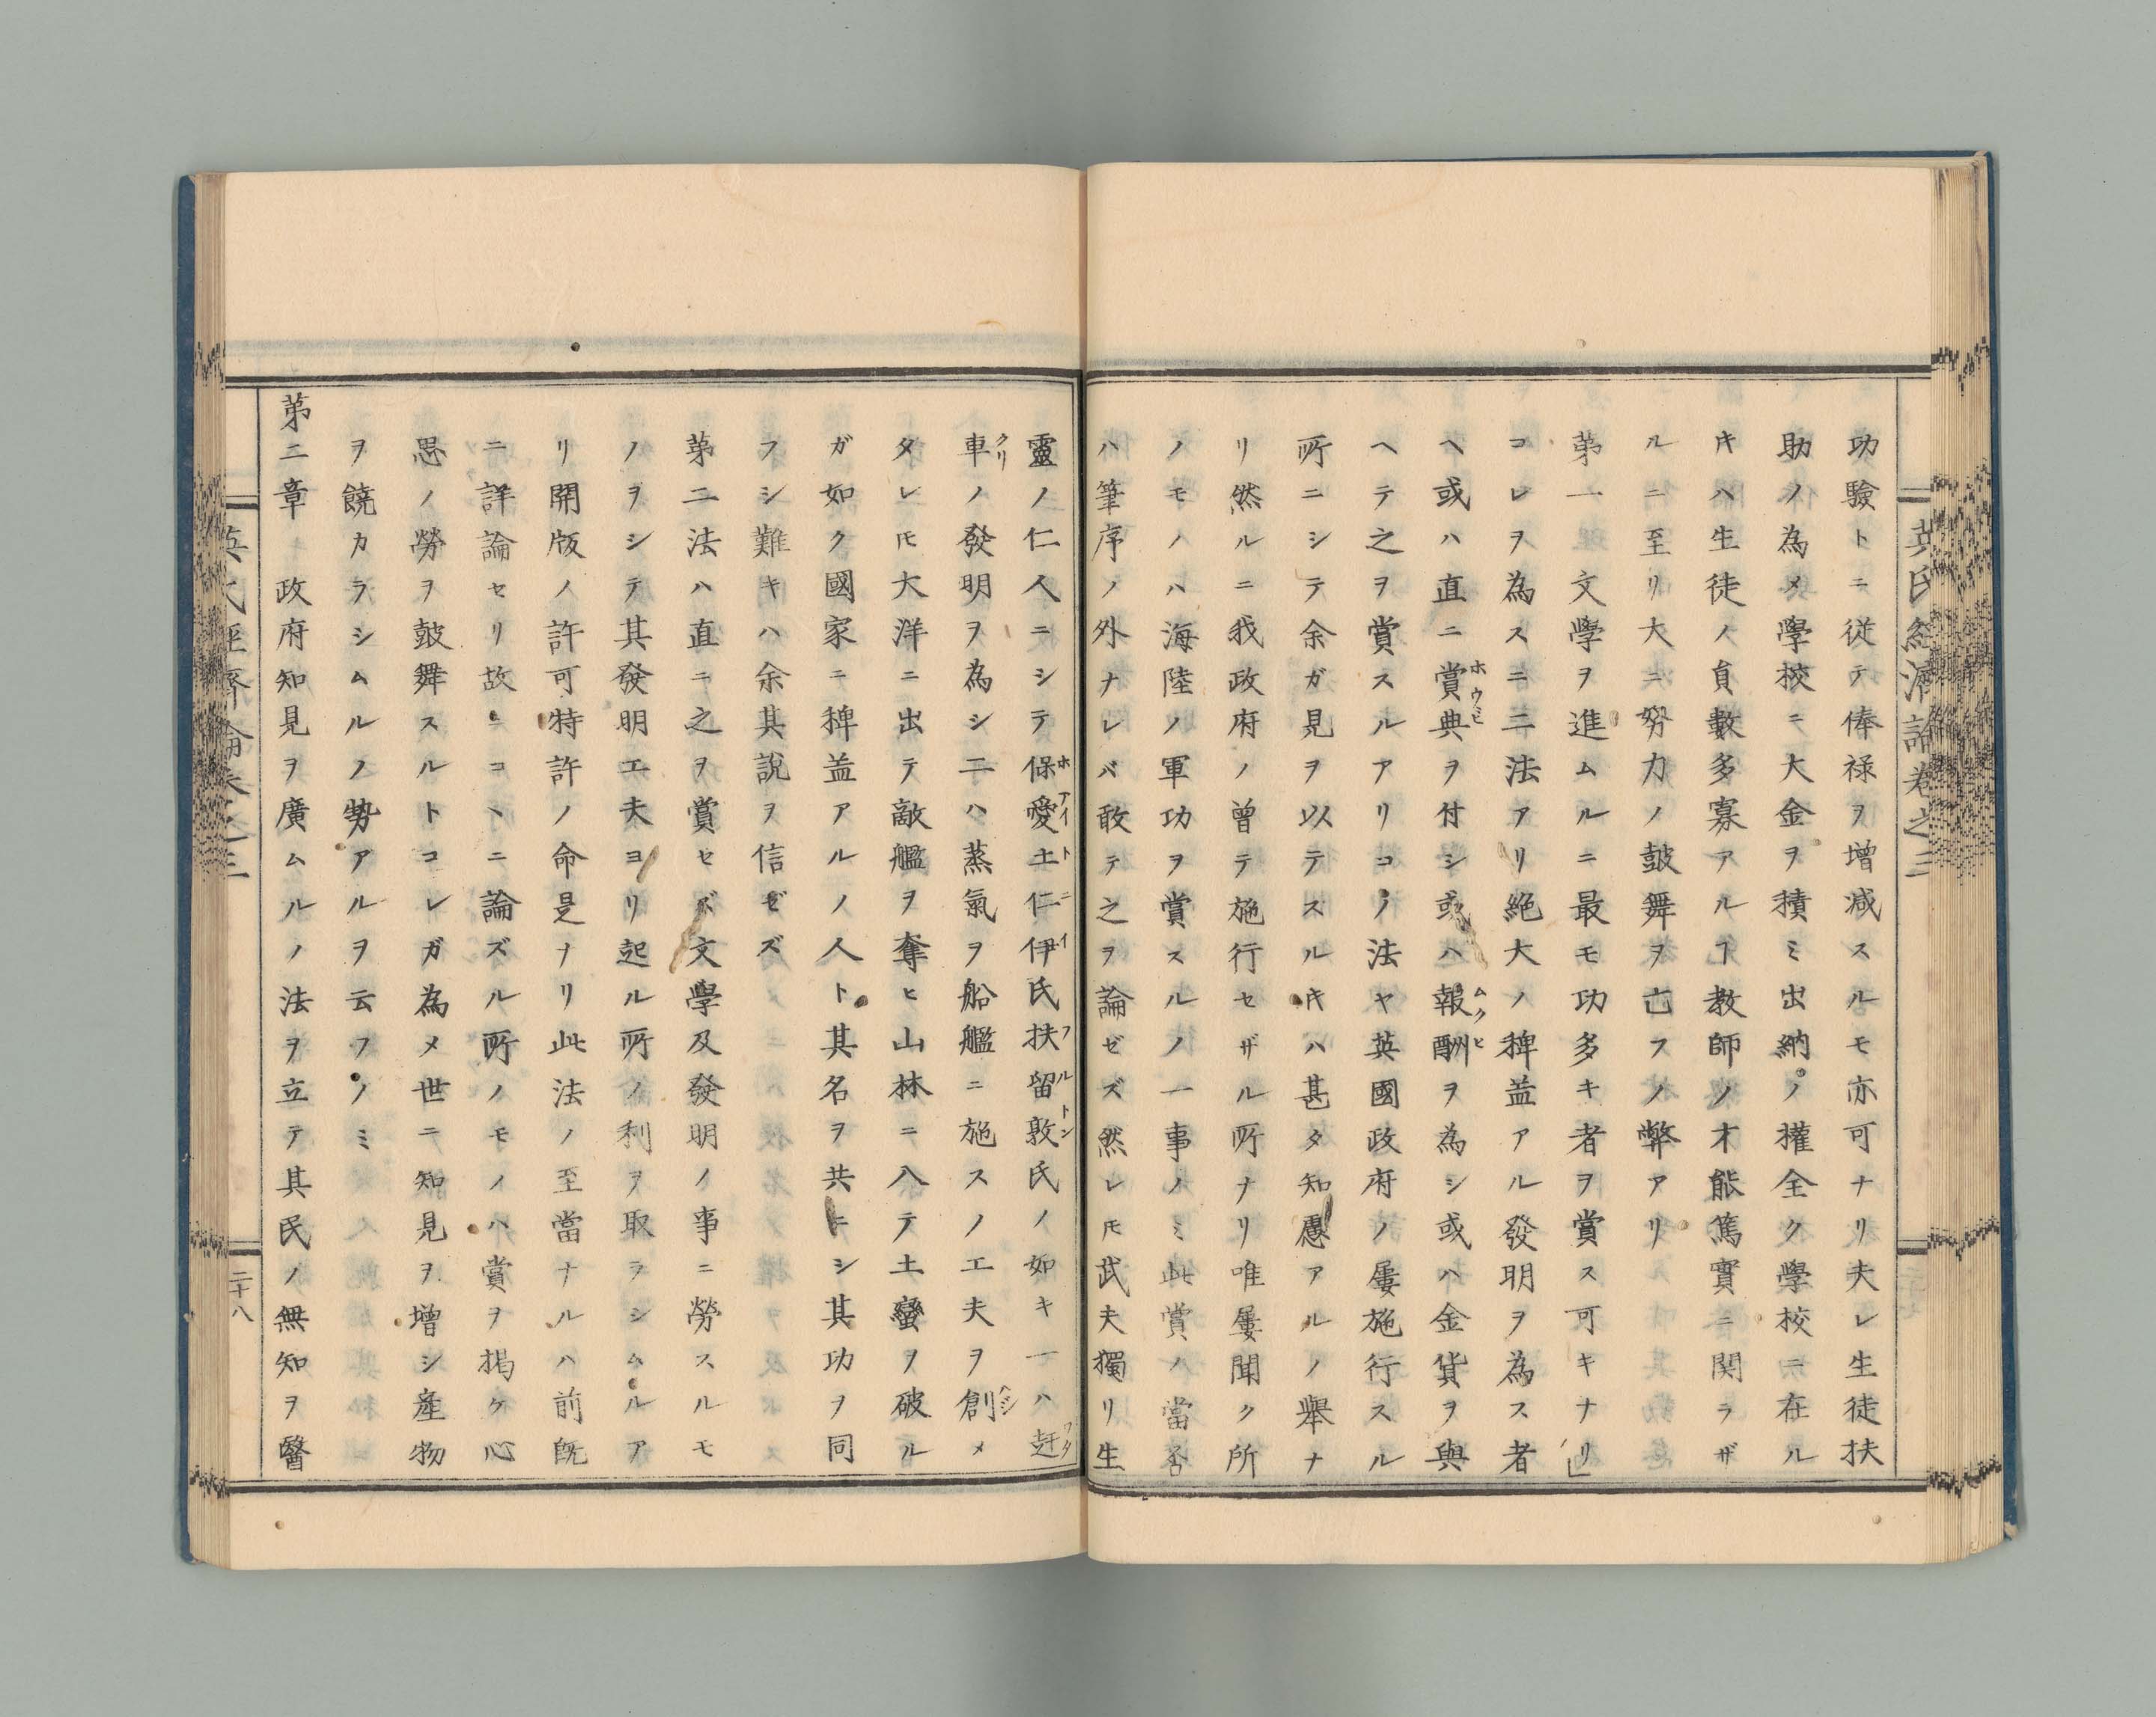 英氏經濟論卷之三
功驗トニ従テ俸禄ヲ增減スルモ亦可ナリ夫レ生徒扶
助ノ為メ學校ニ大金ヲ積ミ出納ノ權全ク學校ニ在ル
キハ生徒ノ負數多寡アルヿ教師ノ才能篤實ニ関ラザ
ルニ至リ大ニ努力ノ鼓舞ヲ亡フノ弊アリ
第一文學ヲ進ムルニ最モ功多キ者ヲ賞ス可キナリ」
コレヲ為スニ二法アリ絶大ノ稗益アル發明ヲ為ス者
ヘ或ハ直ニ賞典ヲ付シ或ハ報酬ヲ為シ或ハ金貨ヲ與
ヘテ之ヲ賞スルアリコノ法ヤ英國政府ノ屢施行スル
所ニシテ余ガ見ヲ以テスルキハ甚タ知慮アルノ舉ナ
リ然ルニ我政府ノ曾テ施行セザル所ナリ唯屢聞ク所
ノモノハ海陸ノ軍功ヲ賞スルノ一事ノミ此賞ノ當否
ハ筆序ノ外ナレバ敢テ之ヲ論ゼズ然レ𪜈武夫獨リ生
靈ノ仁人ニシテ保愛土仁伊氏扶留敦氏ノ如キ一ハ赶
車ノ發明ヲ為シ二ハ蒸氣ヲ船艦ニ施スノ工夫ヲ創メ
タレ𪜈大洋ニ出テ敵艦ヲ奪ヒ山林ニ入テ土蠻ヲ破ル
ガ如ク國家ニ稗益アルノ人ト其名ヲ共ニシ其功ヲ同
フシ難キハ余其說ヲ信ゼズ
第二法ハ直ニ之ヲ賞セズ文學及發明ノ事ニ勞スルモ
ノヲシテ其發明工夫ヨリ起ル所ノ利ヲ取ラシムルア
リ開版ノ許可特許ノ命是ナリ此法ノ至當ナルハ前既
ニ詳論セリ故ニコヽニ論ズル所ノモノハ賞ヲ揭ケ心
思ノ勞ヲ鼓舞スルトコレガ為メ世ニ知見ヲ增シ産物
ヲ饒カラシムルノ勢アルヲ云フノミ
第二章 政府知見ヲ廣ムルノ法ヲ立テ其民ノ無知ヲ醫
英氏經濟論卷之三
二十八